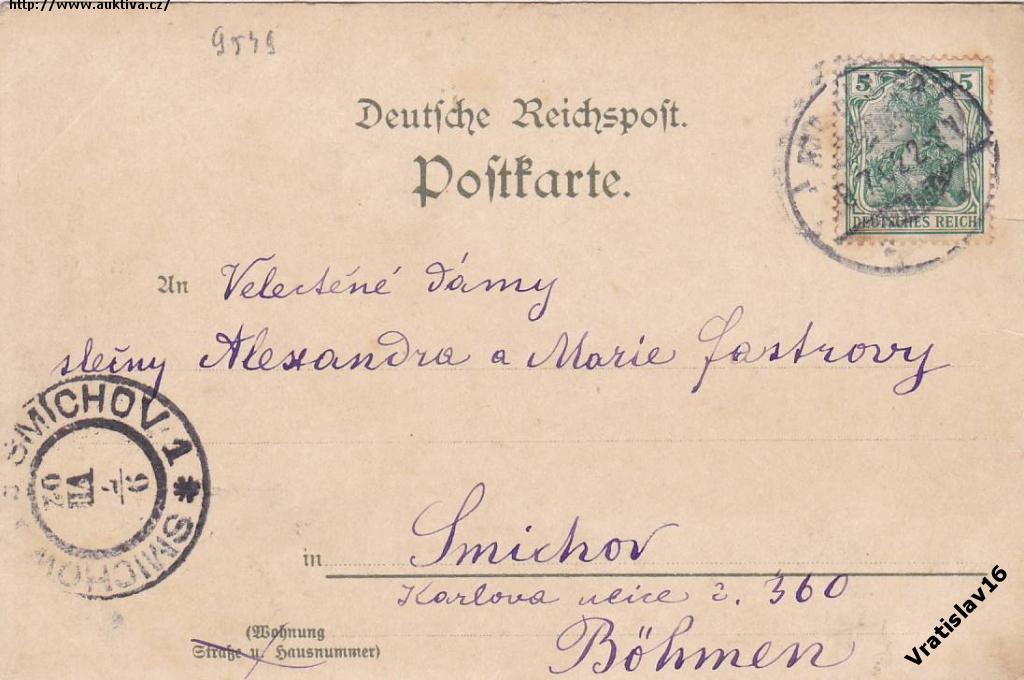 http://www.auktiva.cz/
9549
Deutsche Reichspost.
Postkarte.
5 5
DEUTSCHES REICH
An Velectěné dámy
slečny Alexandra a Marie Jastrovy
SMÍCHOV 1 * SMICHOW
9 VII 02
in Smíchov
Karlova ulice č. 360
(Wohnung
Straße u. Hausnummer)
Böhmen
Vratislav16